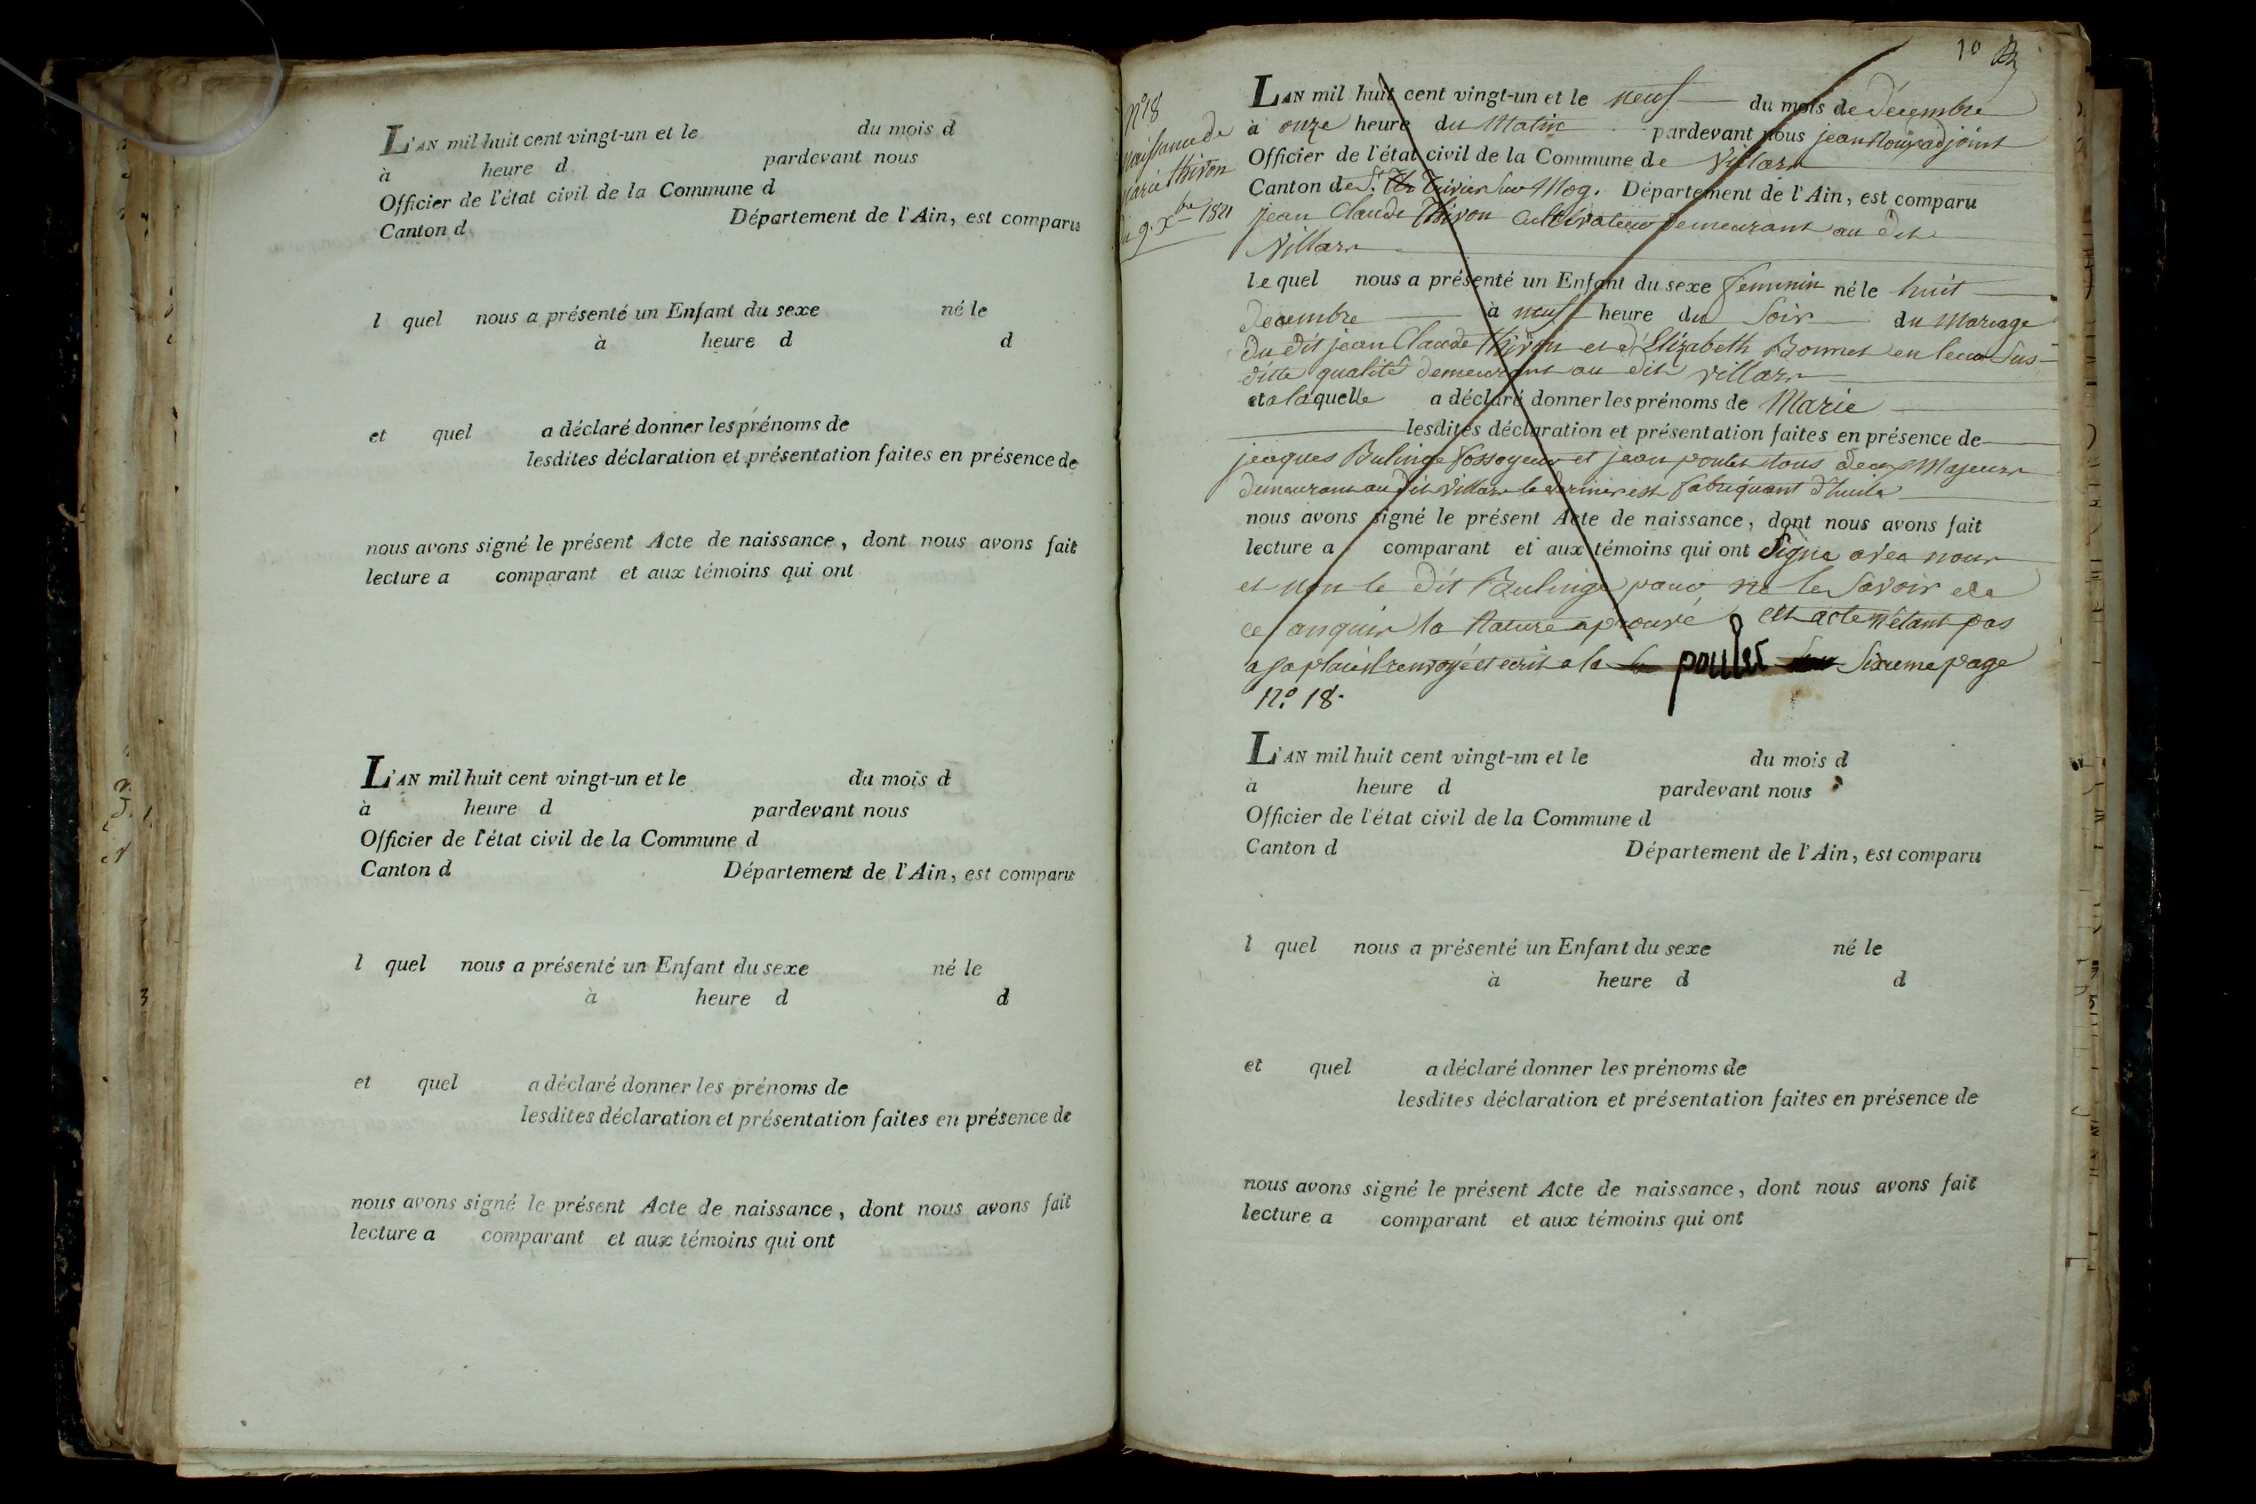 L'AN mil huit cent vingt-un et le du mois d
à heure d pardevant nous
Officier de l'état civil de la Commune d
Canton d Département de l'Ain, est comparu
l quel nous a présenté un Enfant du sexe né le
à heure d d
et quel a déclaré donner les prénoms de
lesdites déclaration et présentation faites en présence de
nous avons signé le présent Acte de naissance, dont nous avons fait
lecture a comparant et aux témoins qui ont
L'AN mil huit cent vingt-un et le du mois d
à heure d pardevant nous
Officier de l'état civil de la Commune d
Canton d Département de l'Ain, est comparu
l quel nous a présenté un Enfant du sexe né le
à heure d d
et quel a déclaré donner les prénoms de
lesdites déclaration et présentation faites en présence de
nous avons signé le présent Acte de naissance, dont nous avons fait
lecture a comparant et aux témoins qui ont
10
n° 18
Naissance de
Marie thivon
9. Xbre 1821
LAN mil huit cent vingt-un et le neuf du mois de décembre
à onze heure du Matin pardevant nous jean adjoint
Officier de l'état civil de la Commune de Villars
Canton de St. trivier sur Mog. Département de l'Ain, est comparu
jean Claude thivon cultivateur demeurant au dit
Villars
lequel nous a présenté un Enfant du sexe feminin né le huit
decembre à neuf heure du Soir du Mariage
du dit jean Claude thivon et d'Elizabeth Bonnet en leur sus-
ditte qualité demeurant au dit villars
et a laquelle a déclaré donner les prénoms de Marie
lesdites déclaration et présentation faites en présence de
jacques Bulinge fossoyeur et jean poulet tous deux Majeurs
demeurant au dit villars le dernier est fabriquant d'huile
nous avons signé le présent Acte de naissance, dont nous avons fait
lecture a comparant et aux témoins qui ont Signé avec nous
et non le dit Bulinge pour ne le Savoir de
ce enquis la Nature aprouvé cet acte n'étant pas
a sa place il renvoyé et ecrit a la poulet Sixieme page
n.° 18.
L'AN mil huit cent vingt-un et le du mois d
à heure d pardevant nous
Officier de l'état civil de la Commune d
Canton d Département de l'Ain, est comparu
l quel nous a présenté un Enfant du sexe né le
à heure d d
et quel a déclaré donner les prénoms de
lesdites déclaration et présentation faites en présence de
nous avons signé le présent Acte de naissance, dont nous avons fait
lecture a comparant et aux témoins qui ont